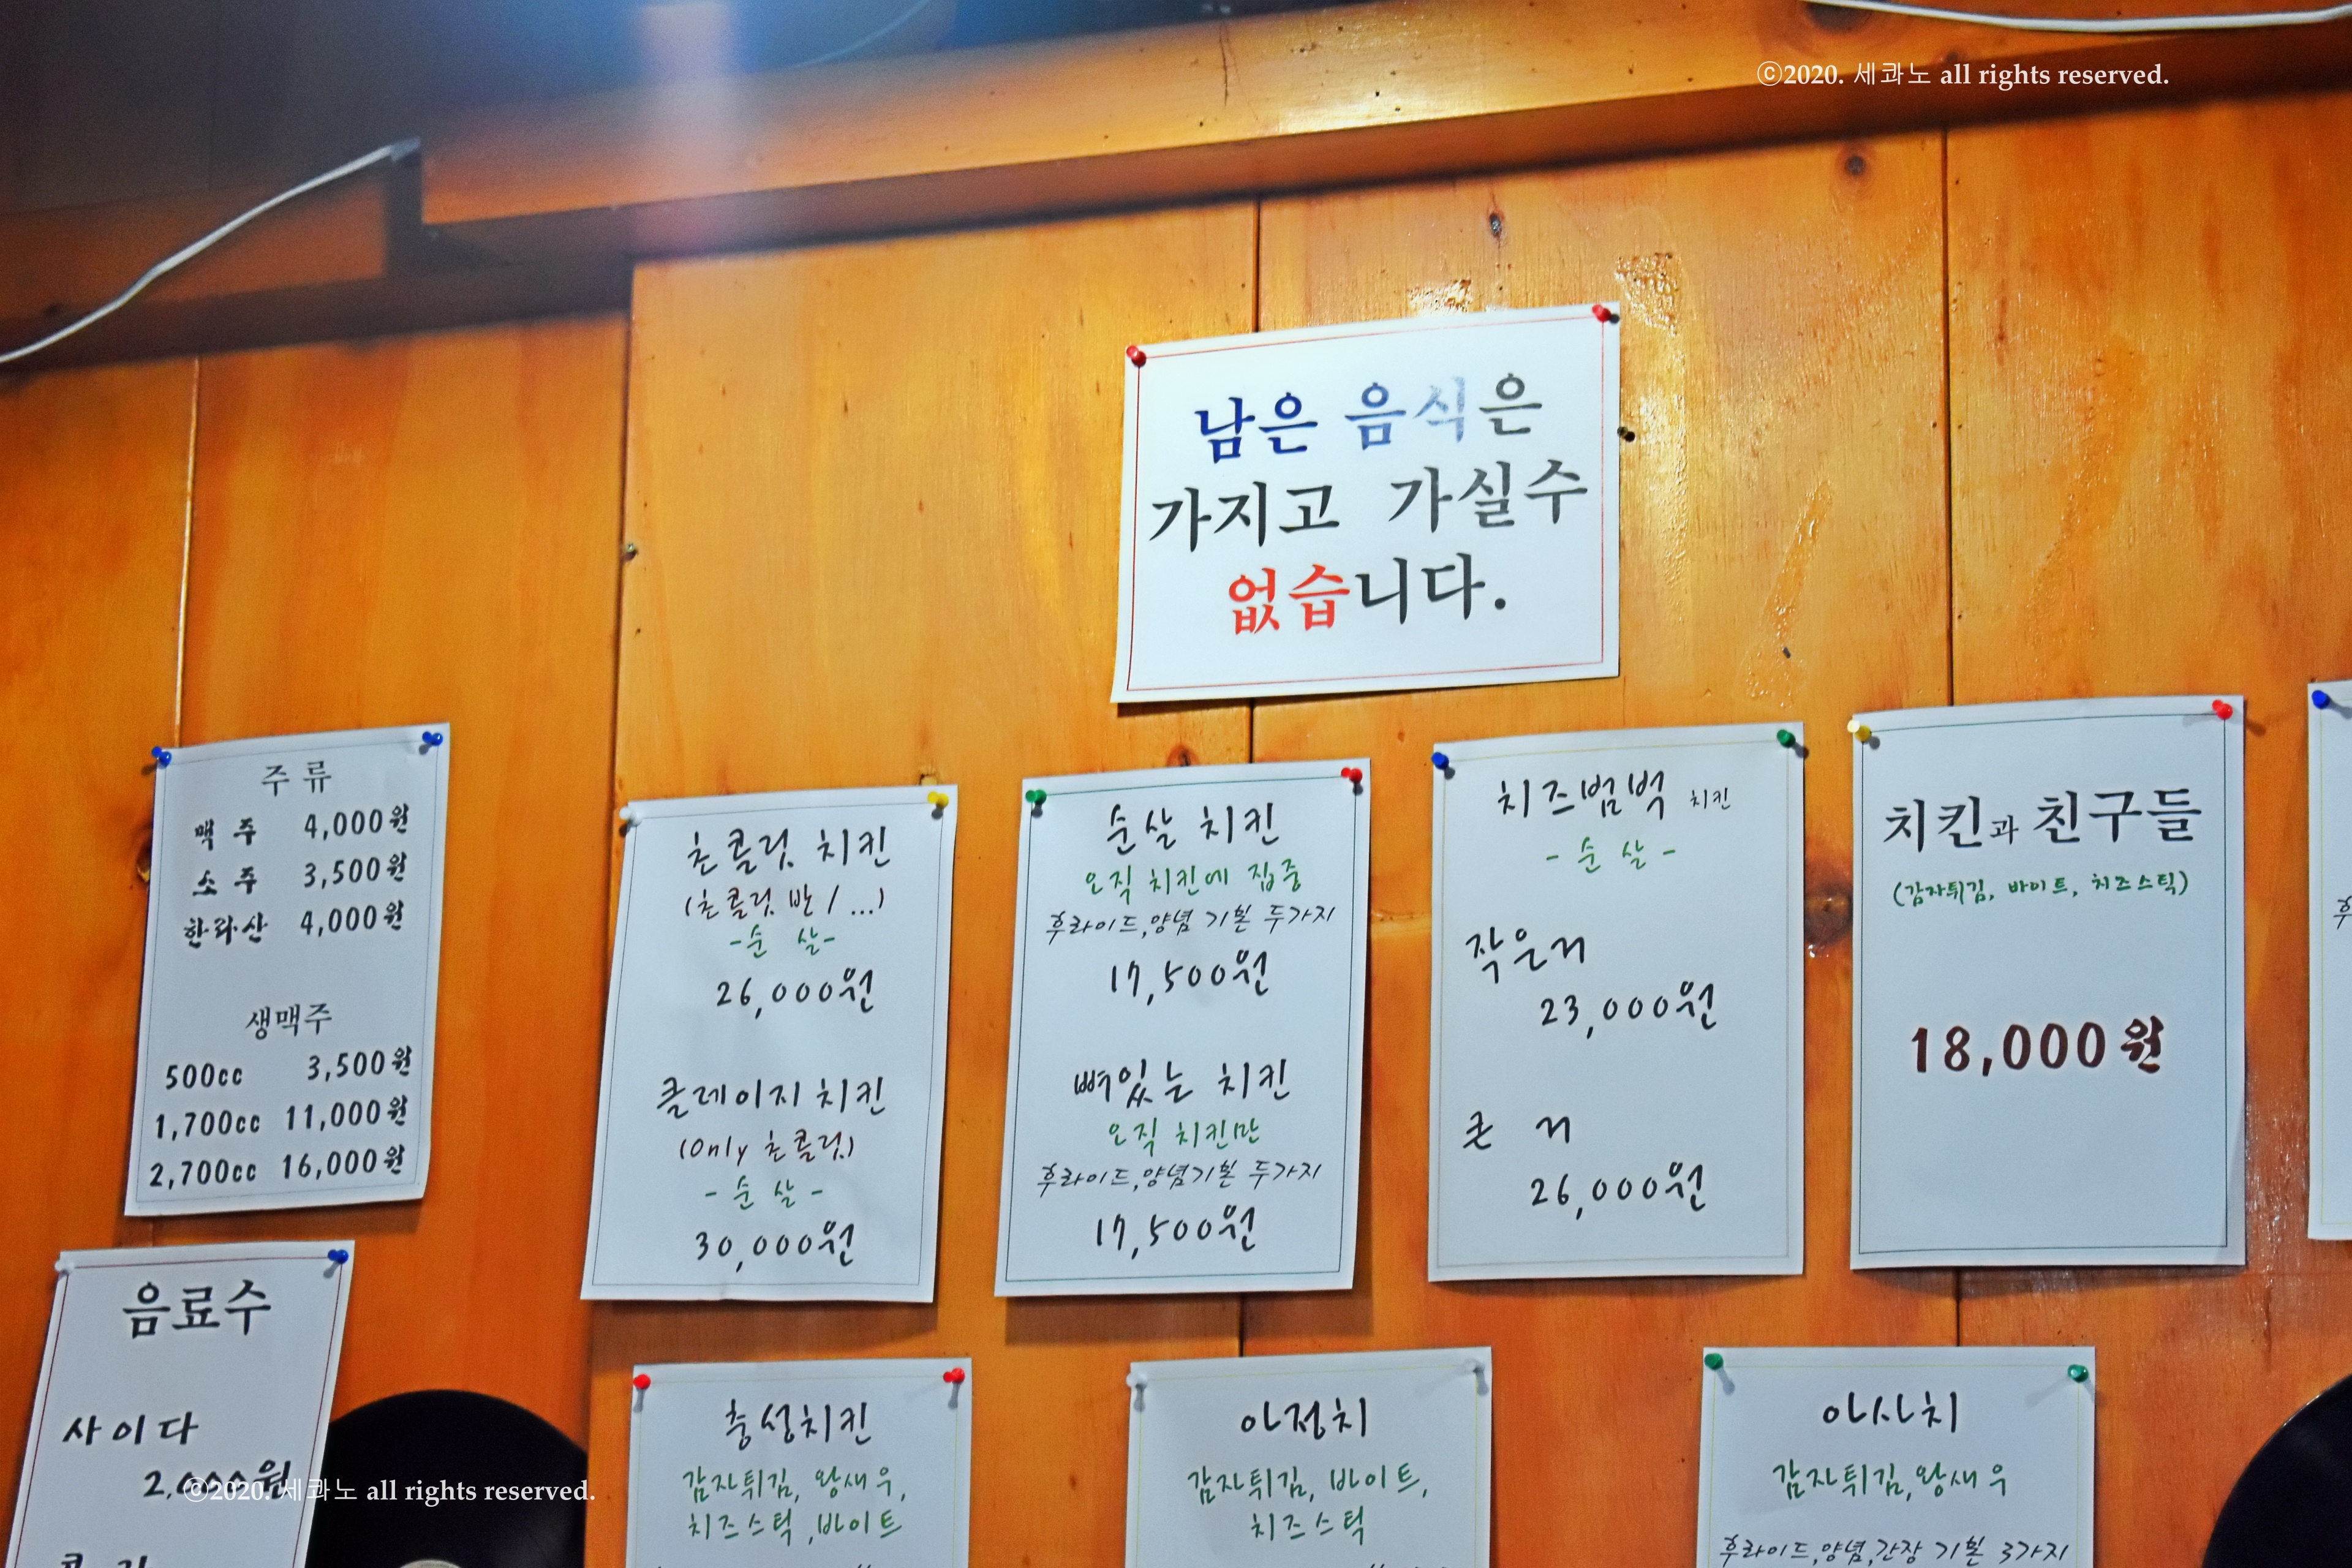 ⓒ2020. 세콰노 all rights reserved.
남은 음식은
가지고 가실수
없습니다.
주 류
맥 주 4,000원
소 주 3,500원
한라산 4,000원
생맥주
500cc 3,500원
1,700cc 11,000원
2,700cc 16,000원
초콜렁 치킨
(초콜렁 반 / ...)
-순 살-
26,000원
클레이지 치킨
(Only 초콜렁)
- 순 살 -
30,000원
순살 치킨
오직 치킨에 집중
후라이드,양념 기본 두가지
17,500원
뼈있는 치킨
오직 치킨만
후라이드,양념기본 두가지
17,500원
치즈범벅 치킨
- 순 살 -
작은거
23,000원
큰 거
26,000원
치킨과 친구들
(감자튀김, 바이트, 치즈스틱)
18,000원
후
음료수
사이다
2,000원
충성치킨
감자튀김, 왕새우,
치즈스틱 ,바이트
아정치
감자튀김, 바이트,
치즈스틱
아사치
감자튀김,왕새우
후라이드,양념,간장 기본 3가지
ⓒ2020. 세콰노 all rights reserved.